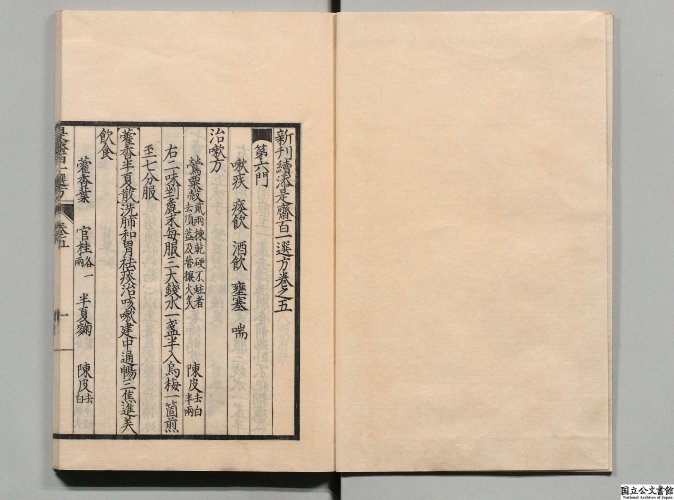 新刊續添是齋百一選方卷之五
第六門
嗽疾 痰飲 酒飲 壅塞 喘
治嗽方
鶯粟殼貳兩揀乾硬不蛀者去頂蓋及蒂穰火炙 陳皮去白半兩
右二味剉麄末每服三大錢水一盞半入烏梅一箇煎
至七分服
藿香半夏散洗肺和胃祛痰治咳嗽建中通暢三焦進美
飲食
藿香葉 官桂各一兩 半夏麴 陳皮去白
是齋百一選方 卷五 一
国立公文書館
National Archives of Japan